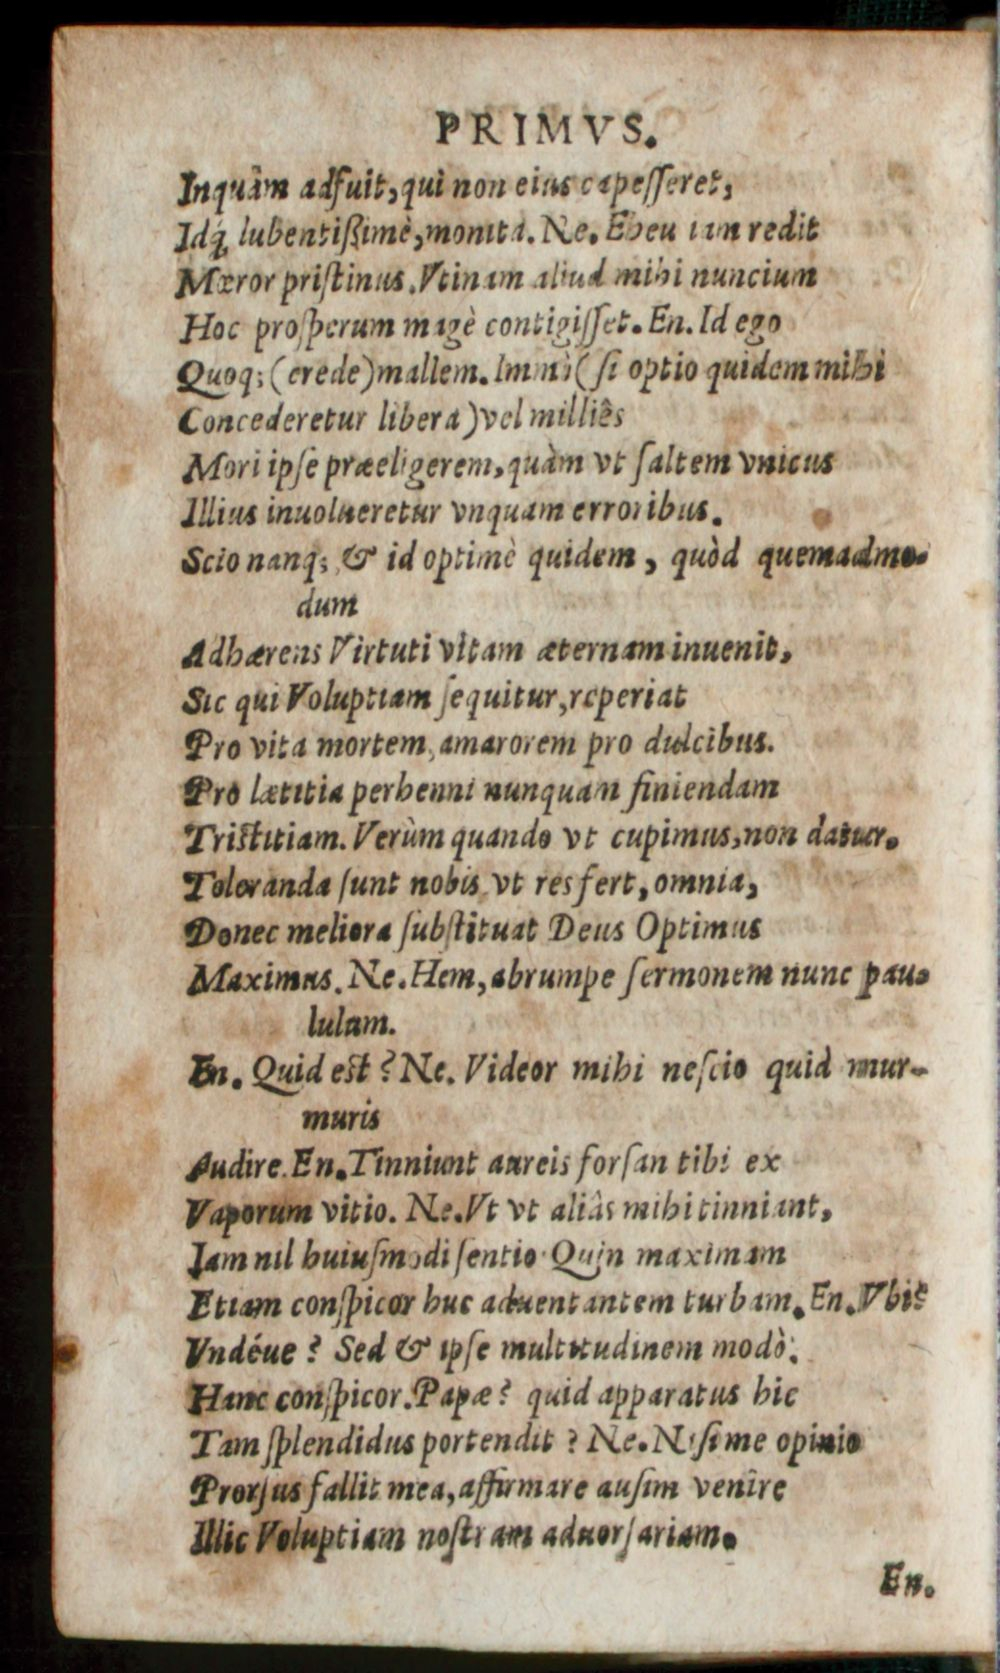 PRIMVS.
Inquàm adfuit, qui non eius capeſſeret,
Idq́; lubentißimè, monita. Ne. Eheu iam redit
Mœror priſtinus. Vtinam aliud mihi nuncium
Hoc proſperum magè contigiſſet. En. Id ego
Quoq; (crede) mallem. Immò (ſi optio quidem mihi
Concederetur libera) vel milliês
Mori ipſe præeligerem, quàm vt ſaltem vnicus
Illius inuolueretur vnquam erroribus.
Scio nanq; & id optimè quidem, quòd quemadmo-
dum
Adhærens Virtuti vitam æternam inuenit,
Sic qui Voluptiam ſequitur, reperiat
Pro vita mortem, amarorem pro dulcibus.
Pro lætitia perhenni nunquam finiendam
Triſtitiam. Verùm quando vt cupimus, non datur.
Toleranda ſunt nobis vt res fert, omnia,
Donec meliora ſubſtituat Deus Optimus
Maximus. Ne. Hem, abrumpe ſermonem nunc pau-
lulum.
En. Quid eſt? Ne. Videor mihi neſcio quid mur-
muris
Audire. En. Tinniunt aureis forſan tibi ex
Vaporum vitio. Ne. Vt vt aliâs mihi tinniant,
Iam nil huiuſmodi ſentio. Quin maximam
Etiam conſpicor huc aduentantem turbam. En. Vbi?
Vndéue? Sed & ipſe multitudinem modò.
Hanc conſpicor. Papæ? quid apparatus hic
Tam ſplendidus portendit? Ne. Niſi me opinio
Prorſus fallit mea, affirmare auſim venire
Illic Voluptiam noſtram aduorſariam.
En.